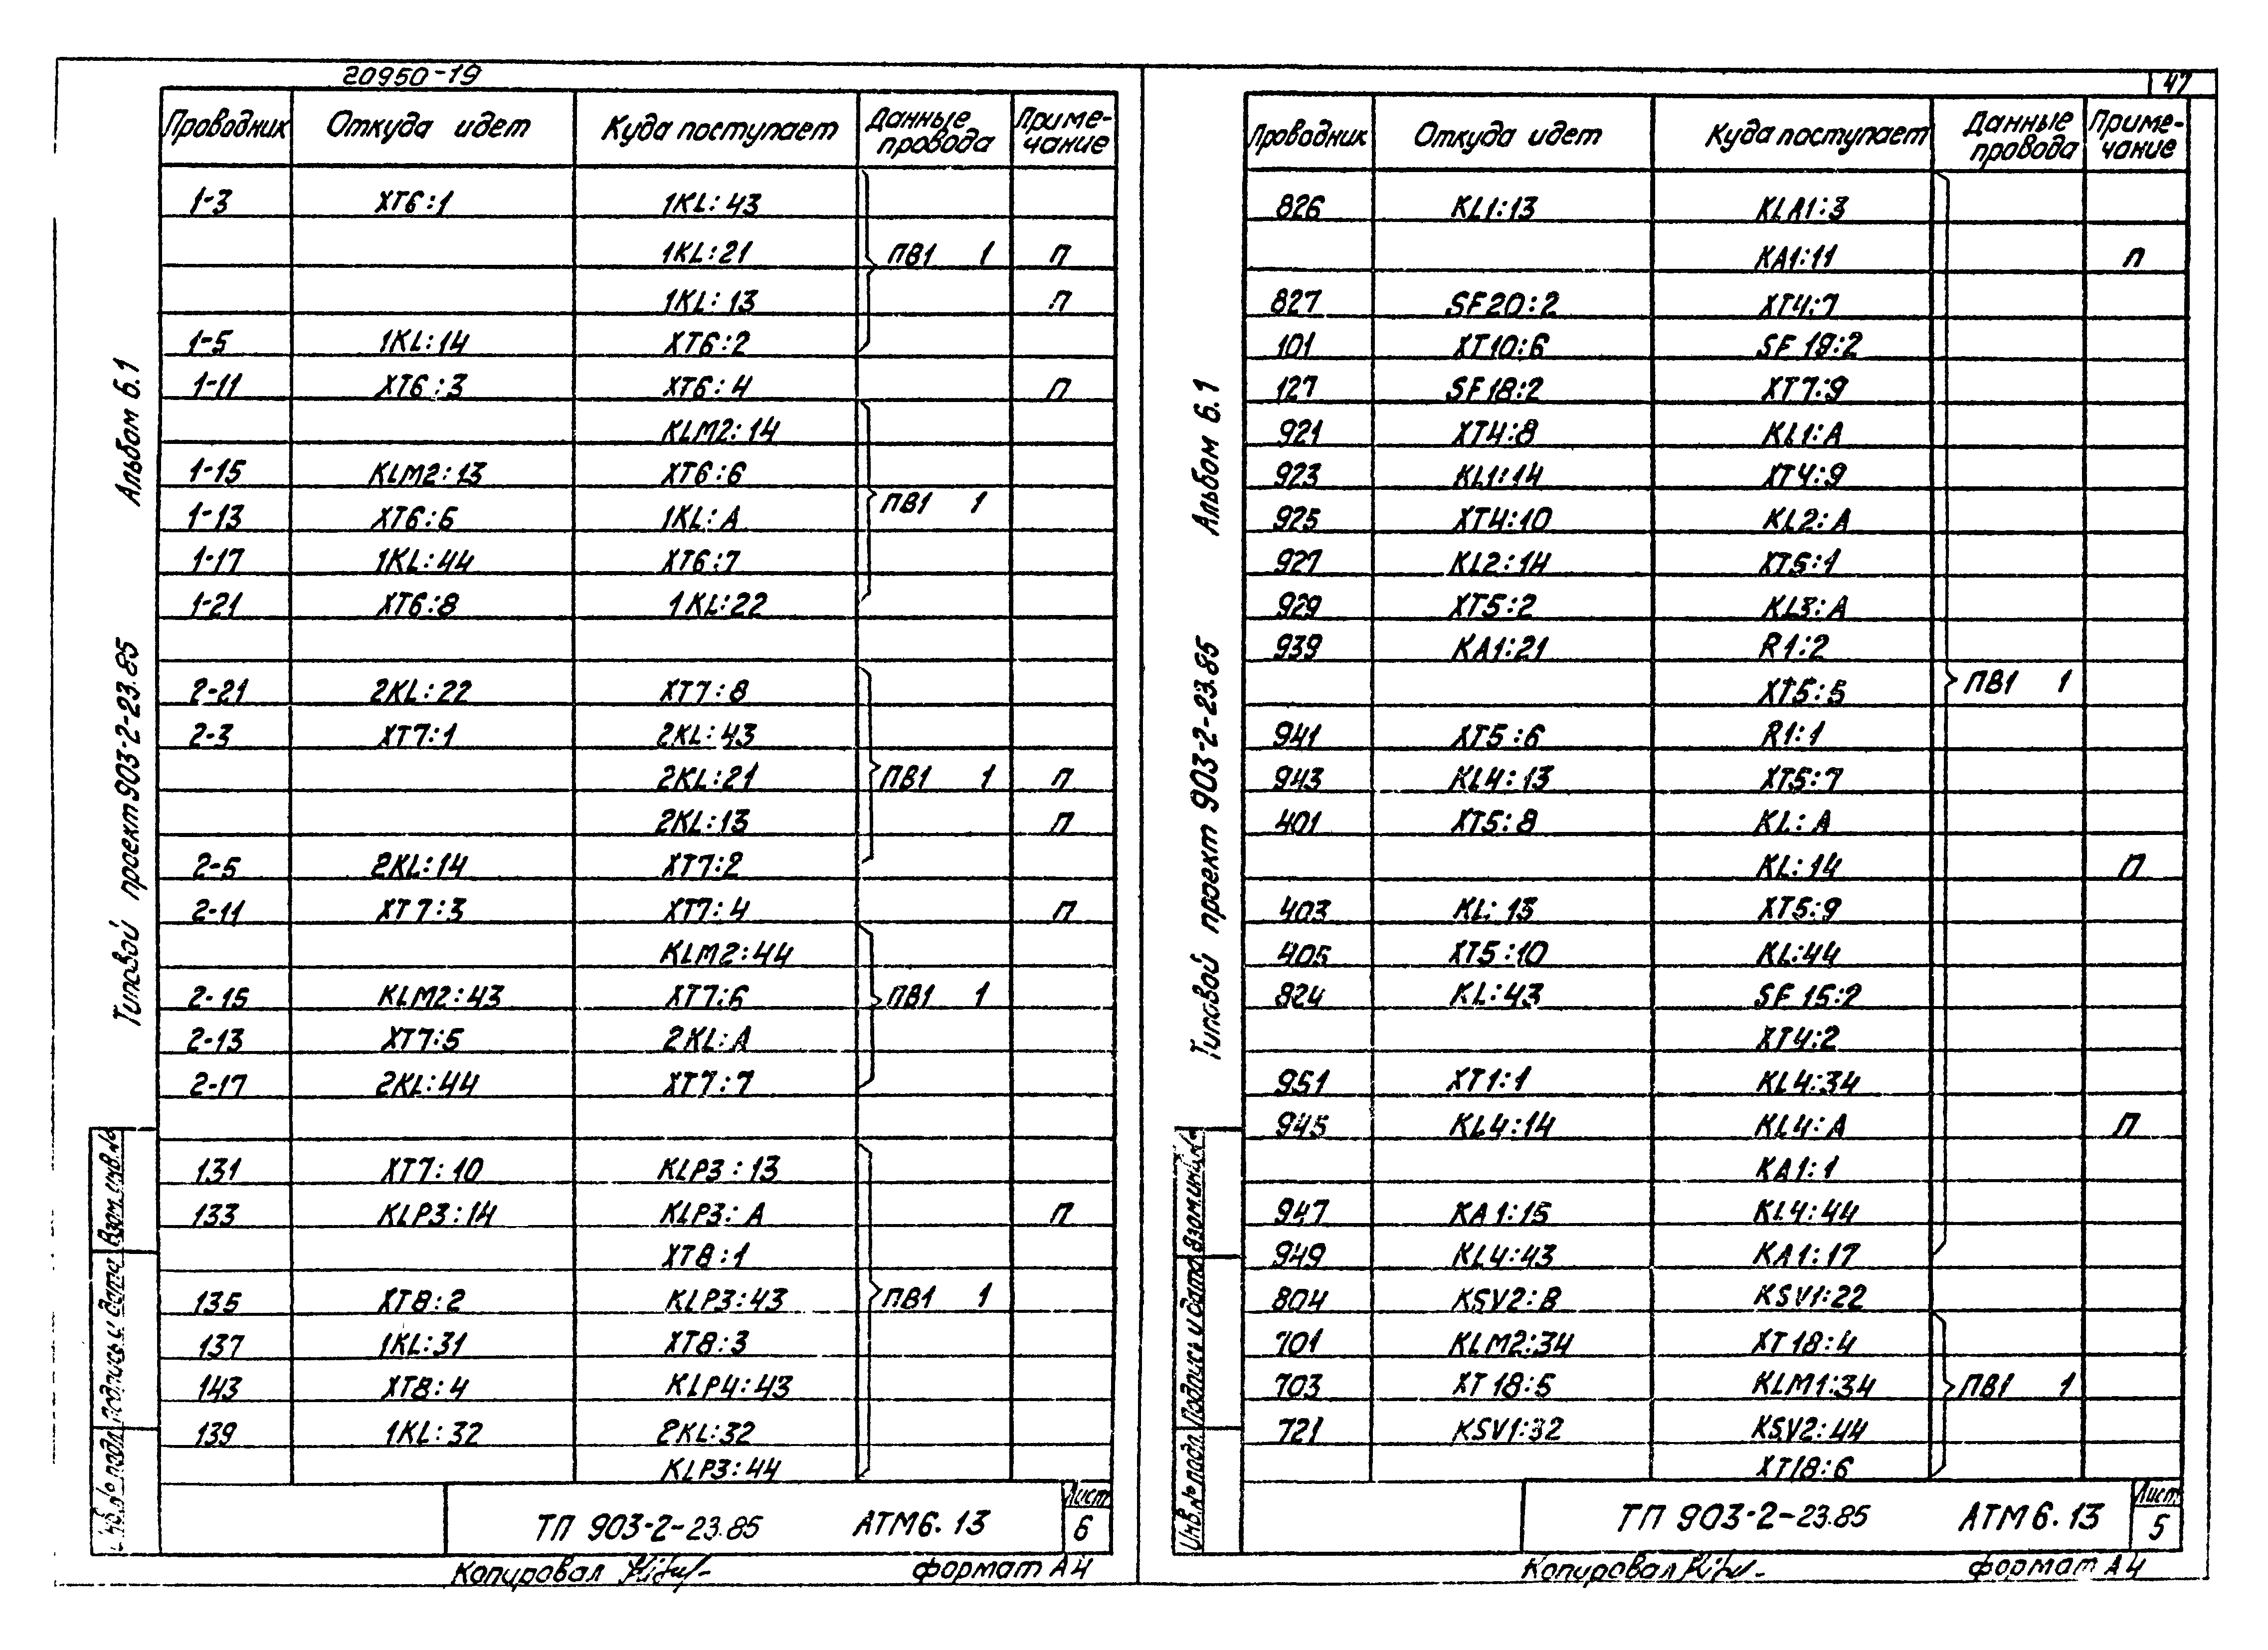 20950-19
Проводник Откуда идет Куда поступает Данные провода Приме-чание
1-3 XT6:1 1KL:43
1KL:21 ПВ1 1 П
1KL:13 П
1-5 1KL:14 XT6:2
1-11 XT6:3 XT6:4 П
KLM2:14
1-15 KLM2:13 XT6:6
ПВ1 1
1-13 XT6:5 1KL:A
1-17 1KL:44 XT6:7
1-21 XT6:8 1KL:22
2-21 2KL:22 XT7:8
2-3 XT7:1 2KL:43
2KL:21 ПВ1 1 П
2KL:13 П
2-5 2KL:14 XT7:2
2-11 XT7:3 XT7:4 П
KLM2:44
2-15 KLM2:43 XT7:6 ПВ1 1
2-13 XT7:5 2KL:A
2-17 2KL:44 XT7:7
131 XT7:10 KLP3:13
133 KLP3:14 KLP3:A П
XT8:1
135 XT8:2 KLP3:43 ПВ1 1
137 1KL:31 XT8:3
143 XT8:4 KLP4:43
139 1KL:32 2KL:32
KLP3:44
ТП 903-2-23.85 АТМ6.13
Лист
6
Копировал
формат А4
Альбом 6.1
Типовой проект 903-2-23.85
Взам.инв.№
Подпись и дата
Инв.№ подл.
47
Проводник Откуда идет Куда поступает Данные провода Приме-чание
826 KL1:13 KLA1:3
KA1:11 П
827 SF20:2 XT4:7
101 XT10:6 SF19:2
127 SF18:2 XT7:9
921 XT4:8 KL1:A
923 KL1:14 XT4:9
925 XT4:10 KL2:A
927 KL2:14 XT5:1
929 XT5:2 KL3:A
939 KA1:21 R1:2
XT5:5 ПВ1 1
941 XT5:6 R1:1
943 KL4:13 XT5:7
401 XT5:8 KL:A
KL:14 П
403 KL:13 XT5:9
405 XT5:10 KL:44
824 KL:43 SF15:2
XT4:2
951 XT1:1 KL4:34
945 KL4:14 KL4:A П
KA1:1
947 KA1:15 KL4:44
949 KL4:43 KA1:17
804 KSV2:B KSV1:22
701 KLM2:34 XT18:4
703 XT18:5 KLM1:34 ПВ1 1
721 KSV1:32 KSV2:44
XT18:6
ТП 903-2-23.85 АТМ6.13
Лист
5
Копировал
формат А4
Альбом 6.1
Типовой проект 903-2-23.85
Взам.инв.№
Подпись и дата
Инв.№ подл.